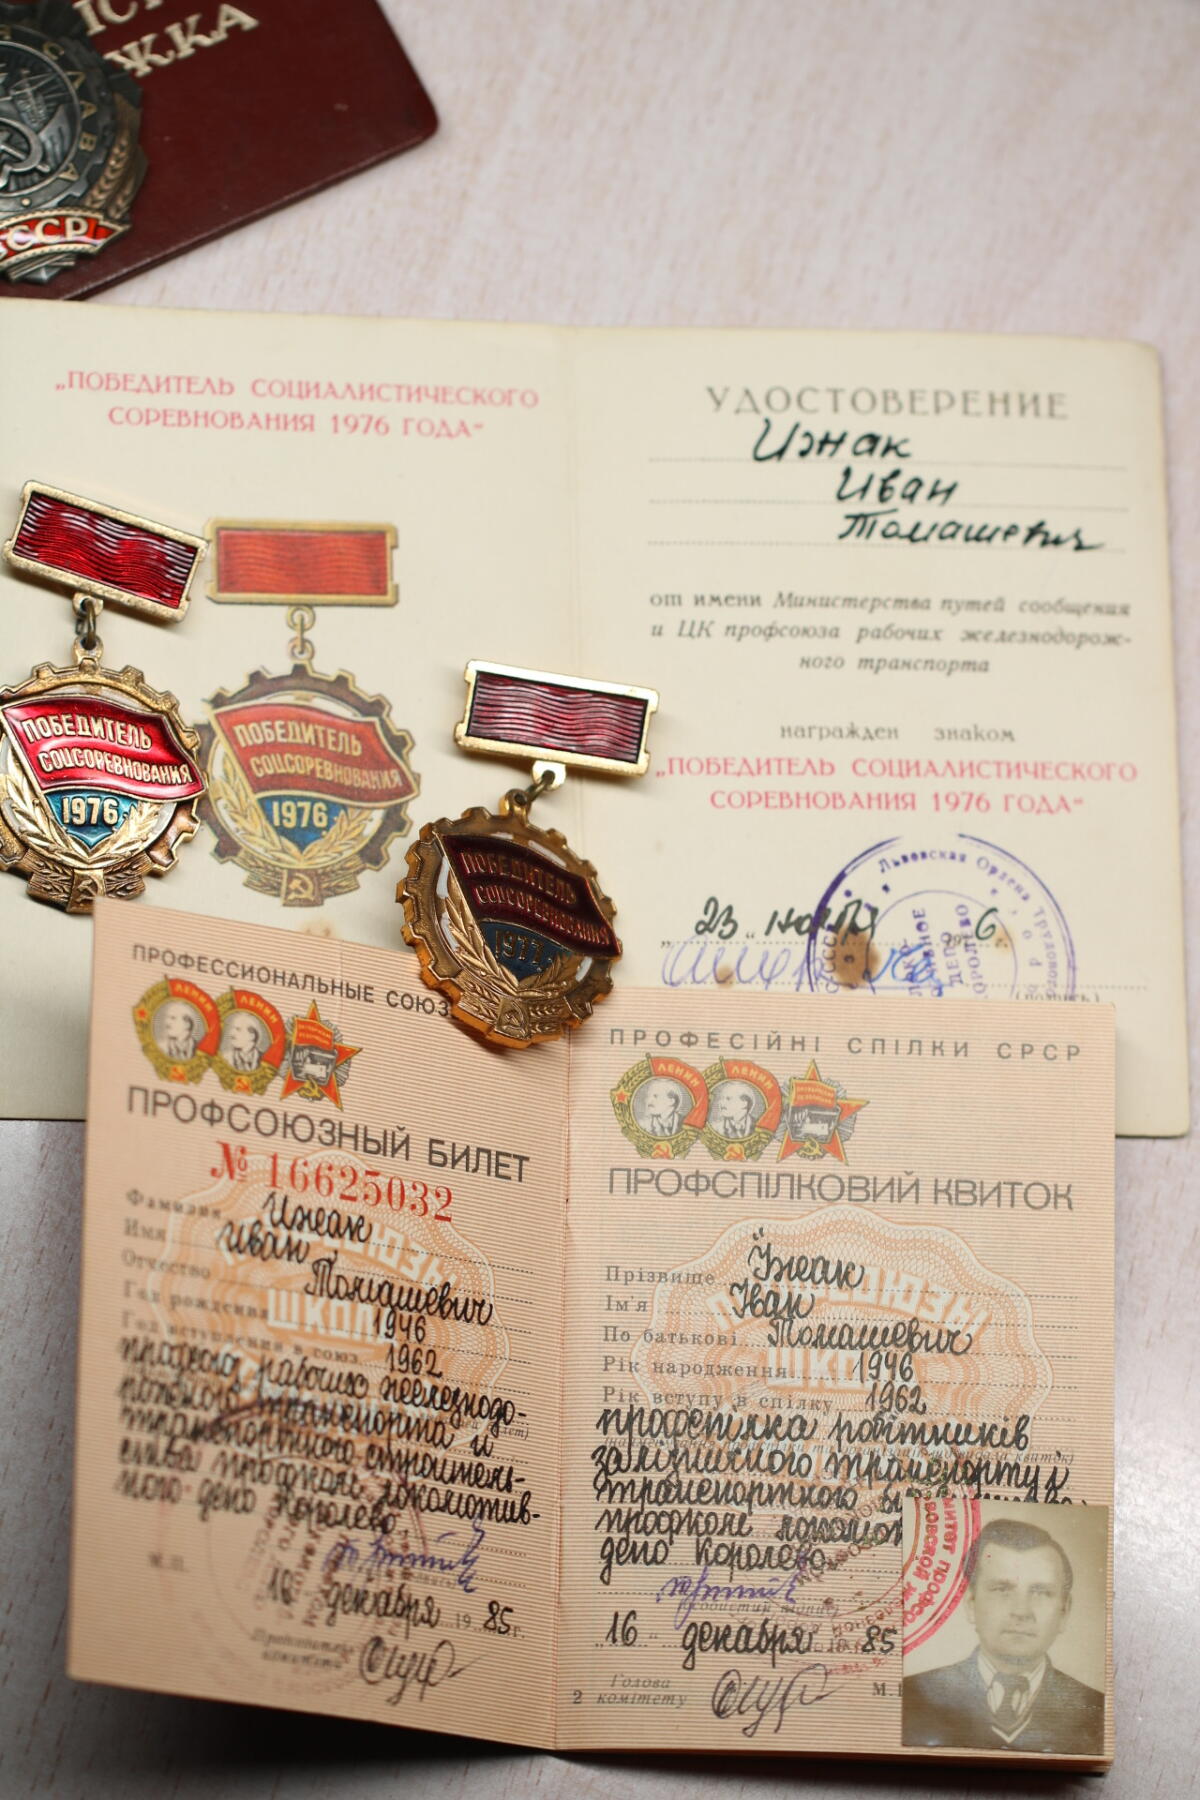 ІСТ
ЖКА
СЛАВА
СССР
„ПОБЕДИТЕЛЬ СОЦИАЛИСТИЧЕСКОГО
СОРЕВНОВАНИЯ 1976 ГОДА“
ПОБЕДИТЕЛЬ
СОЦСОРЕВНОВАНИЯ
1976
ПОБЕДИТЕЛЬ
СОЦСОРЕВНОВАНИЯ
1976
ПОБЕДИТЕЛЬ
СОЦСОРЕВНОВАНИЯ
1977
УДОСТОВЕРЕНИЕ
Ижак
Иван
Томашевич
от имени Министерства путей сообщения
и ЦК профсоюза рабочих железнодорож-
ного транспорта
награжден знаком
„ПОБЕДИТЕЛЬ СОЦИАЛИСТИЧЕСКОГО
СОРЕВНОВАНИЯ 1976 ГОДА“
Львовская Ордена Трудового
ДЕПО
„23“ 197 6
(подпись)
ПРОФЕССИОНАЛЬНЫЕ СОЮЗ
ЛЕНИН
ЛЕНИН
ПРОФСОЮЗНЫЙ БИЛЕТ
№ 16625032
Фамилия Ижак
Имя Иван
Отчество Томашевич
Год рождения 1946
Год вступления в союз 1962
профсоюз рабочих железнодо-
рожного транспорта и
транспортного строитель-
ства профком локомотив-
ного депо Королево,
М.П.
16 декабря 19 85 г.
Председатель
комитета
ПРОФЕСІЙНІ СПІЛКИ СРСР
ЛЕНИН
ЛЕНИН
ПРОФСПІЛКОВИЙ КВИТОК
Прізвище Їжак
Ім'я Іван
По батькові Томашевич
Рік народження 1946
Рік вступу в спілку 1962
профспілка робітників
залізничного транспорту і
транспортного
профком
депо Королево
(особистий підпис)
„16“ декабря 19 85
Голова
комітету
М.
2